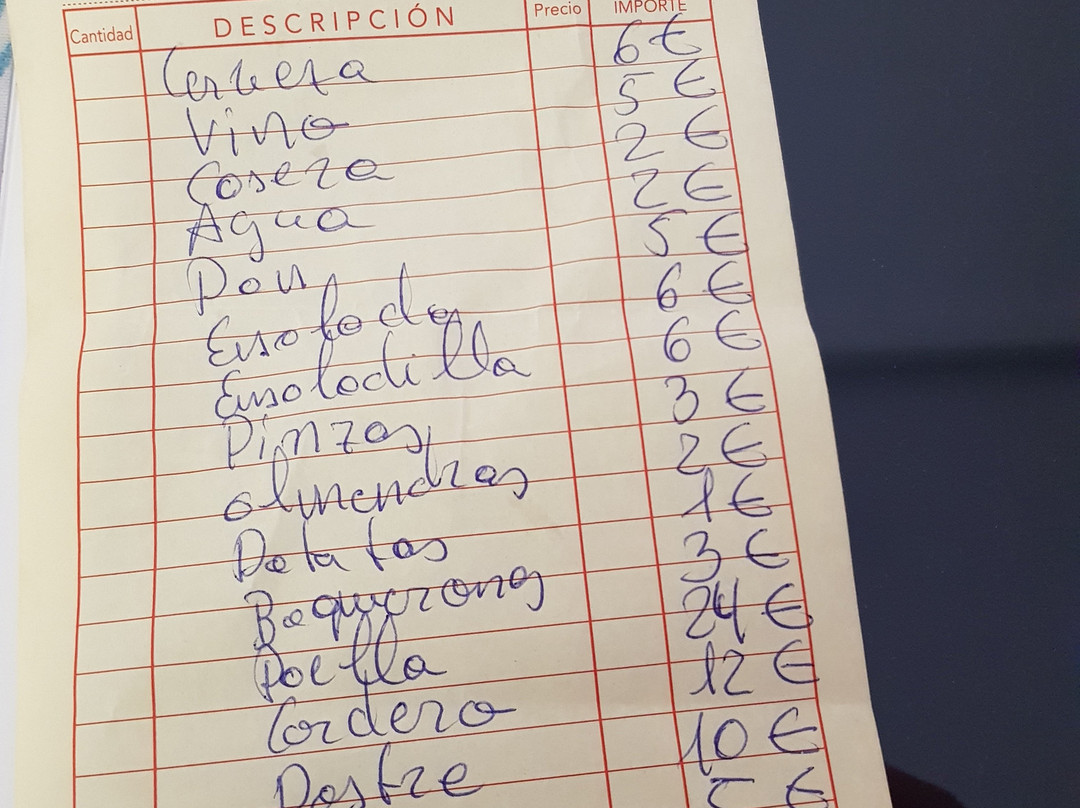 Cantidad DESCRIPCIÓN Precio IMPORTE
Cerveza 6 €
Vino 5 €
Casera 2 €
Agua 2 €
Pan 5 €
Ensalada 6 €
Ensaladilla 6 €
Pinzas 3 €
almendras 2 €
Patatas 1 €
Boquerones 3 €
Paella 24 €
Cordero 12 €
Postre 10 €
€